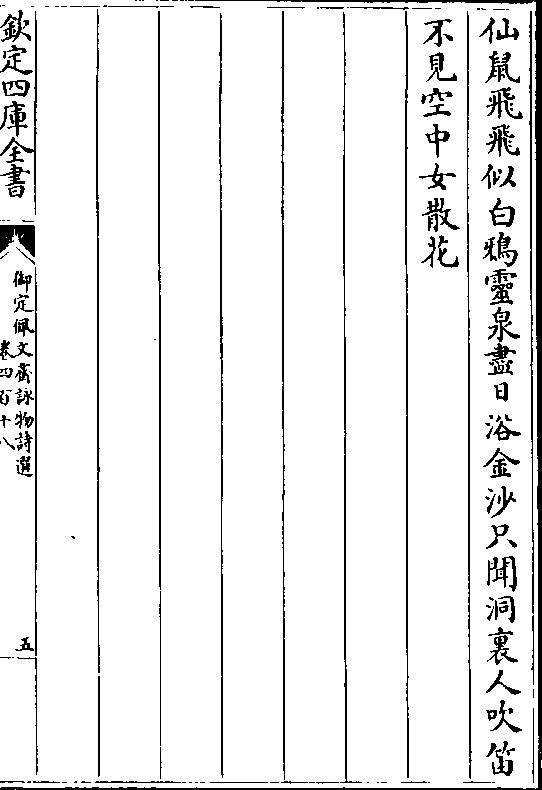 仙鼠飛飛似白鴉靈泉盡日浴金沙只聞洞裏人吹笛
不見空中女散花
欽定四庫全書
御定佩文齋詠物詩選
卷四百十八
五